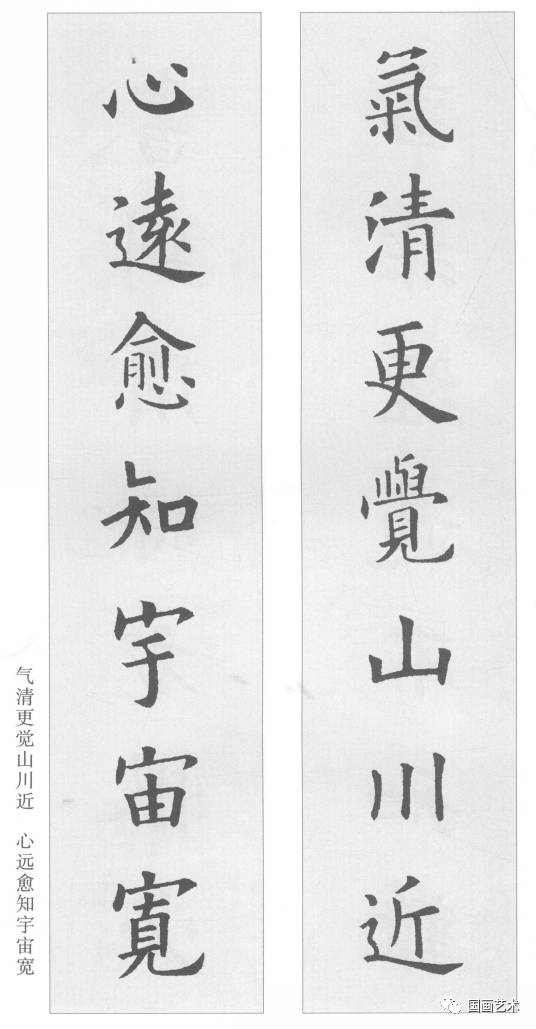 氣清更覺山川近
心遠愈知宇宙寬
气清更觉山川近 心远愈知宇宙宽
国画艺术